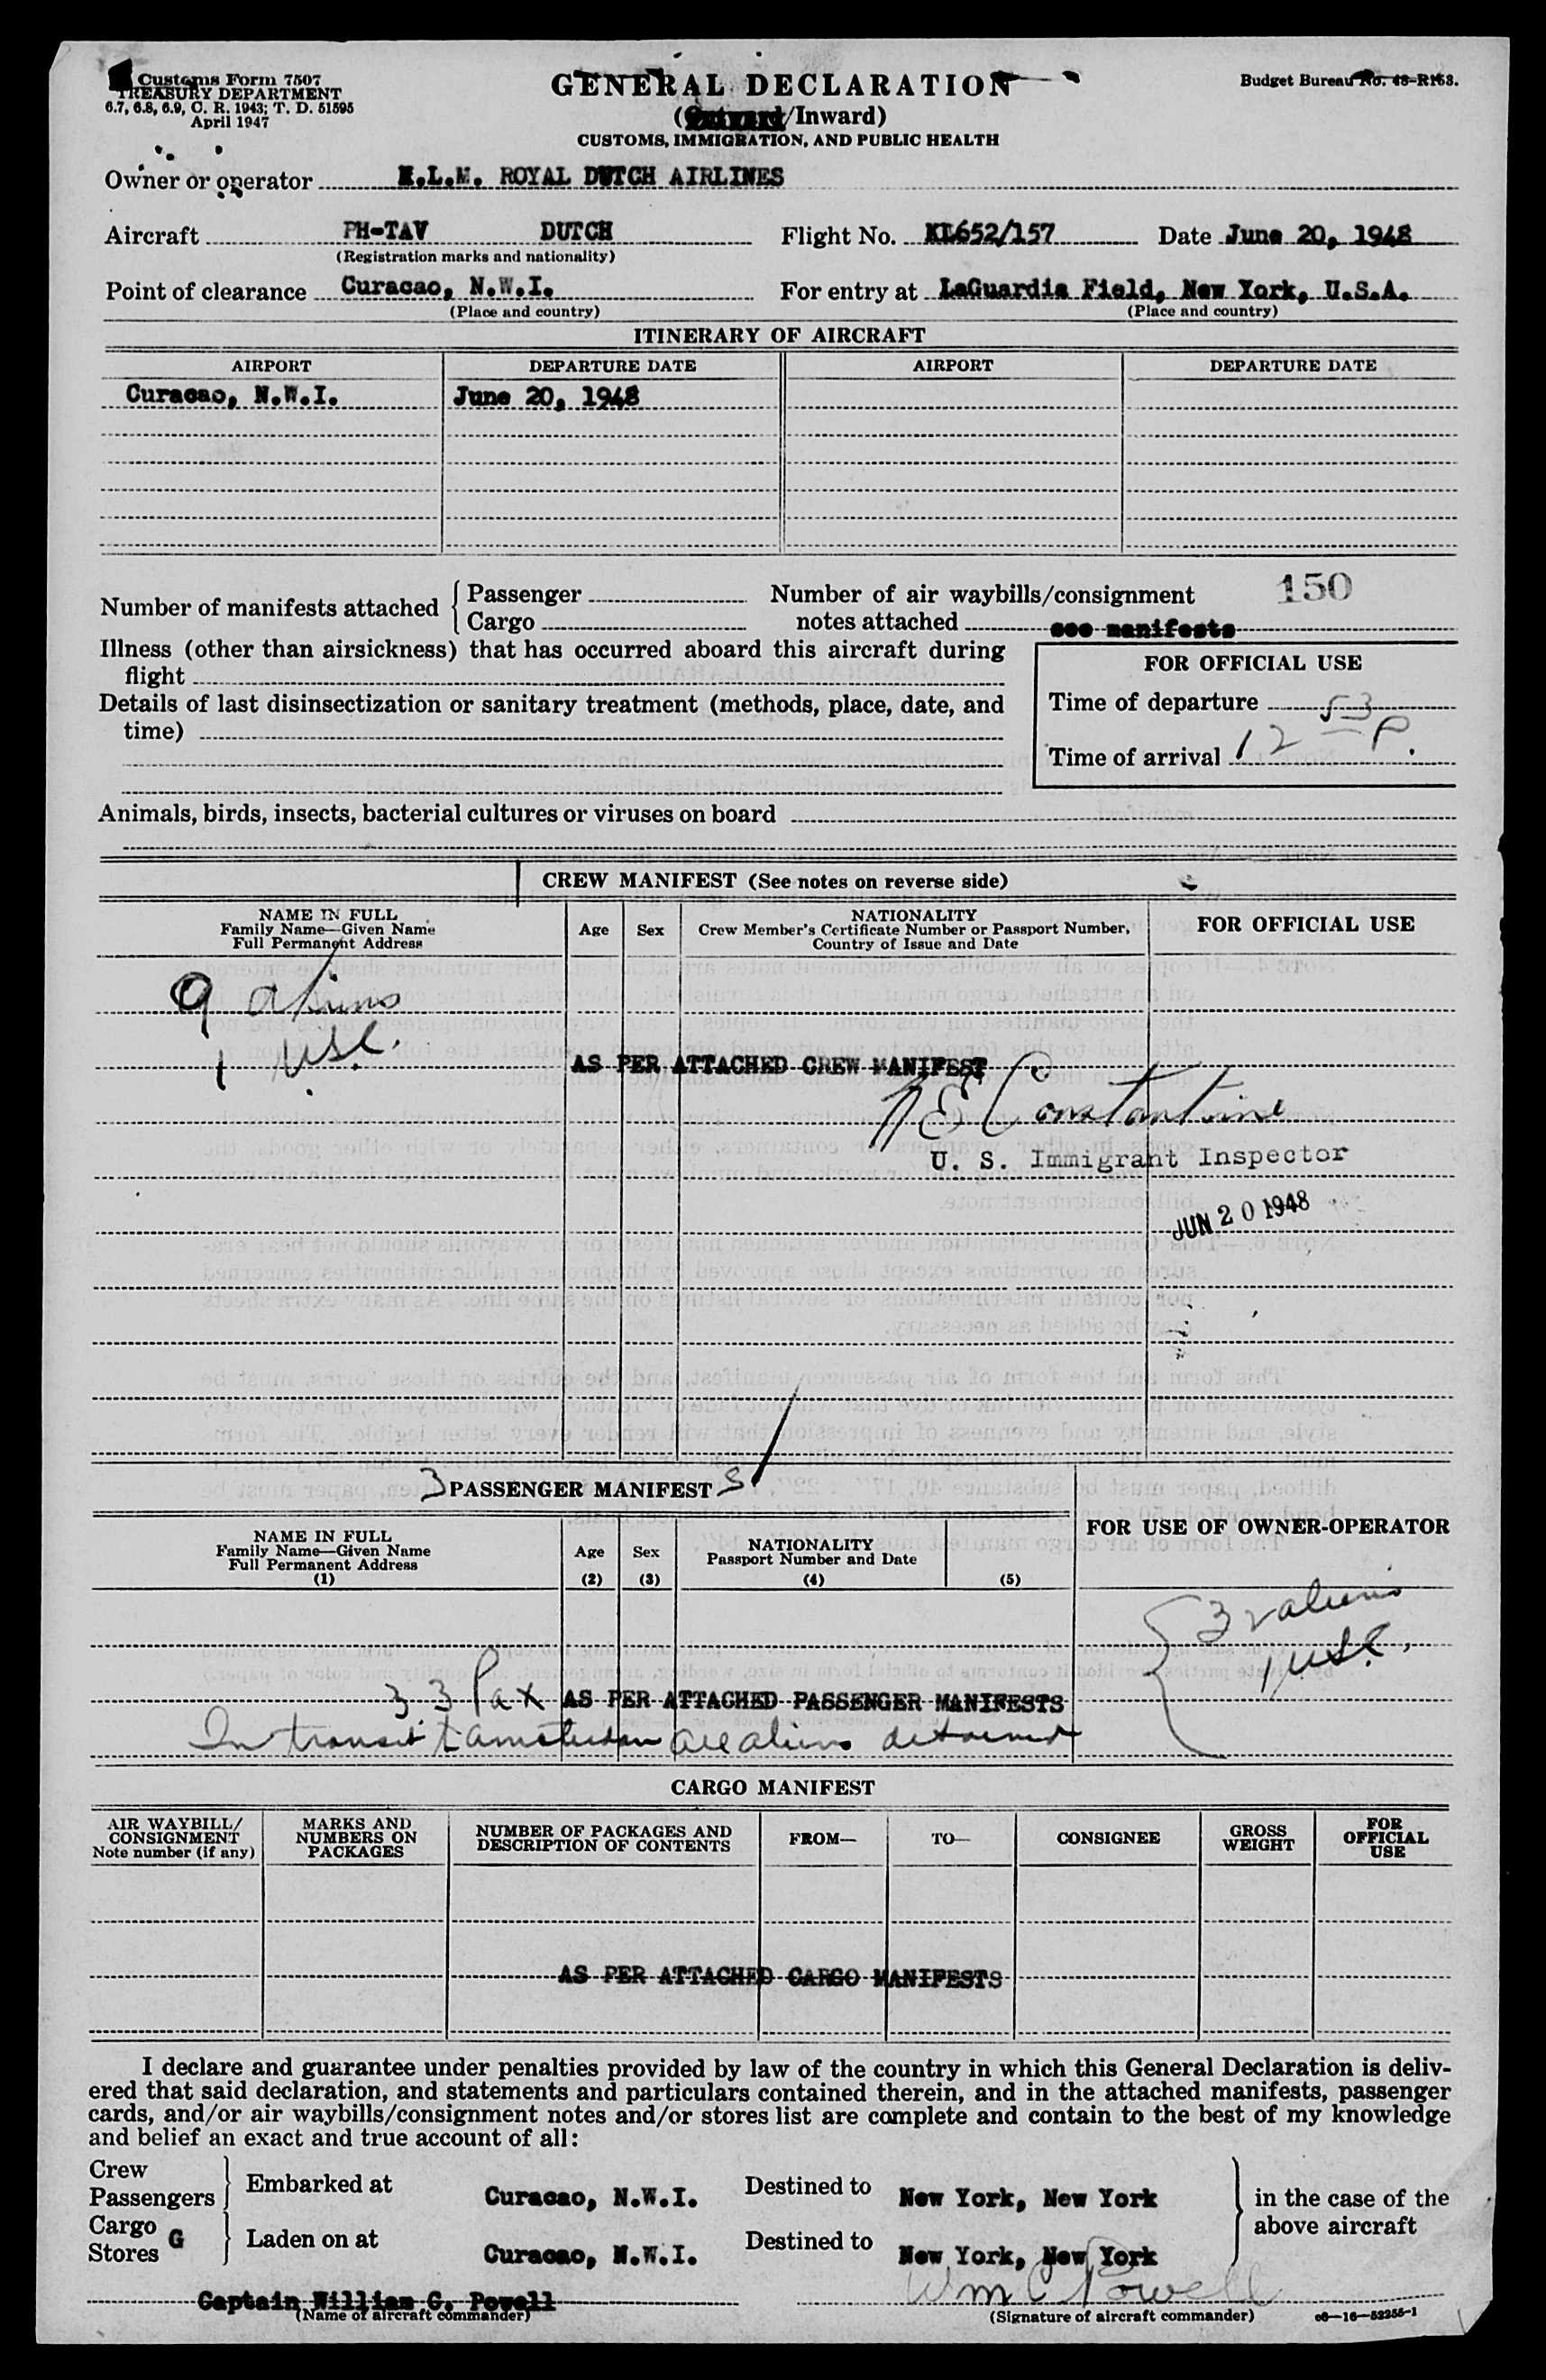 Customs Form 7507
TREASURY DEPARTMENT
6.7, 6.8, 6.9, C. R. 1943; T. D. 51595
April 1947
GENERAL DECLARATION
(Outward/Inward)
CUSTOMS, IMMIGRATION, AND PUBLIC HEALTH
Budget Bureau No. 48-R163.
Owner or operator K.L.M. ROYAL DUTCH AIRLINES
Aircraft PH-TAV DUTCH Flight No. KL652/157 Date June 20, 1948
(Registration marks and nationality)
Point of clearance Curacao, N.W.I. For entry at LaGuardia Field, New York, U.S.A.
(Place and country) (Place and country)
ITINERARY OF AIRCRAFT
AIRPORT DEPARTURE DATE AIRPORT DEPARTURE DATE
Curacao, N.W.I. June 20, 1948
Number of manifests attached { Passenger
Cargo
Number of air waybills/consignment 150
notes attached see manifests
Illness (other than airsickness) that has occurred aboard this aircraft during
flight
Details of last disinsectization or sanitary treatment (methods, place, date, and
time)
FOR OFFICIAL USE
Time of departure
Time of arrival 12 53 P.
Animals, birds, insects, bacterial cultures or viruses on board
CREW MANIFEST (See notes on reverse side)
NAME IN FULL
Family Name—Given Name
Full Permanent Address
Age Sex
NATIONALITY
Crew Member's Certificate Number or Passport Number,
Country of Issue and Date
FOR OFFICIAL USE
9 aliens
1 USC.
AS PER ATTACHED CREW MANIFEST
Constantine
U. S. Immigrant Inspector
JUN 20 1948
3 PASSENGER MANIFEST S
NAME IN FULL
Family Name—Given Name
Full Permanent Address
(1)
Age
(2)
Sex
(3)
NATIONALITY
Passport Number and Date
(4) (5)
FOR USE OF OWNER-OPERATOR
aliens
1 USC.
33 Pax AS PER ATTACHED PASSENGER MANIFESTS
In transit to Amsterdam all aliens detained
CARGO MANIFEST
AIR WAYBILL/
CONSIGNMENT
Note number (if any)
MARKS AND
NUMBERS ON
PACKAGES
NUMBER OF PACKAGES AND
DESCRIPTION OF CONTENTS
FROM— TO— CONSIGNEE
GROSS
WEIGHT
FOR
OFFICIAL
USE
AS PER ATTACHED CARGO MANIFESTS
I declare and guarantee under penalties provided by law of the country in which this General Declaration is deliv-
ered that said declaration, and statements and particulars contained therein, and in the attached manifests, passenger
cards, and/or air waybills/consignment notes and/or stores list are complete and contain to the best of my knowledge
and belief an exact and true account of all:
Crew
Passengers } Embarked at Curacao, N.W.I. Destined to New York, New York
Cargo G
Stores } Laden on at Curacao, N.W.I. Destined to New York, New York
} in the case of the
above aircraft
Captain William C. Powell
(Name of aircraft commander)
Wm C Powell
(Signature of aircraft commander)
c6—16—52255-1